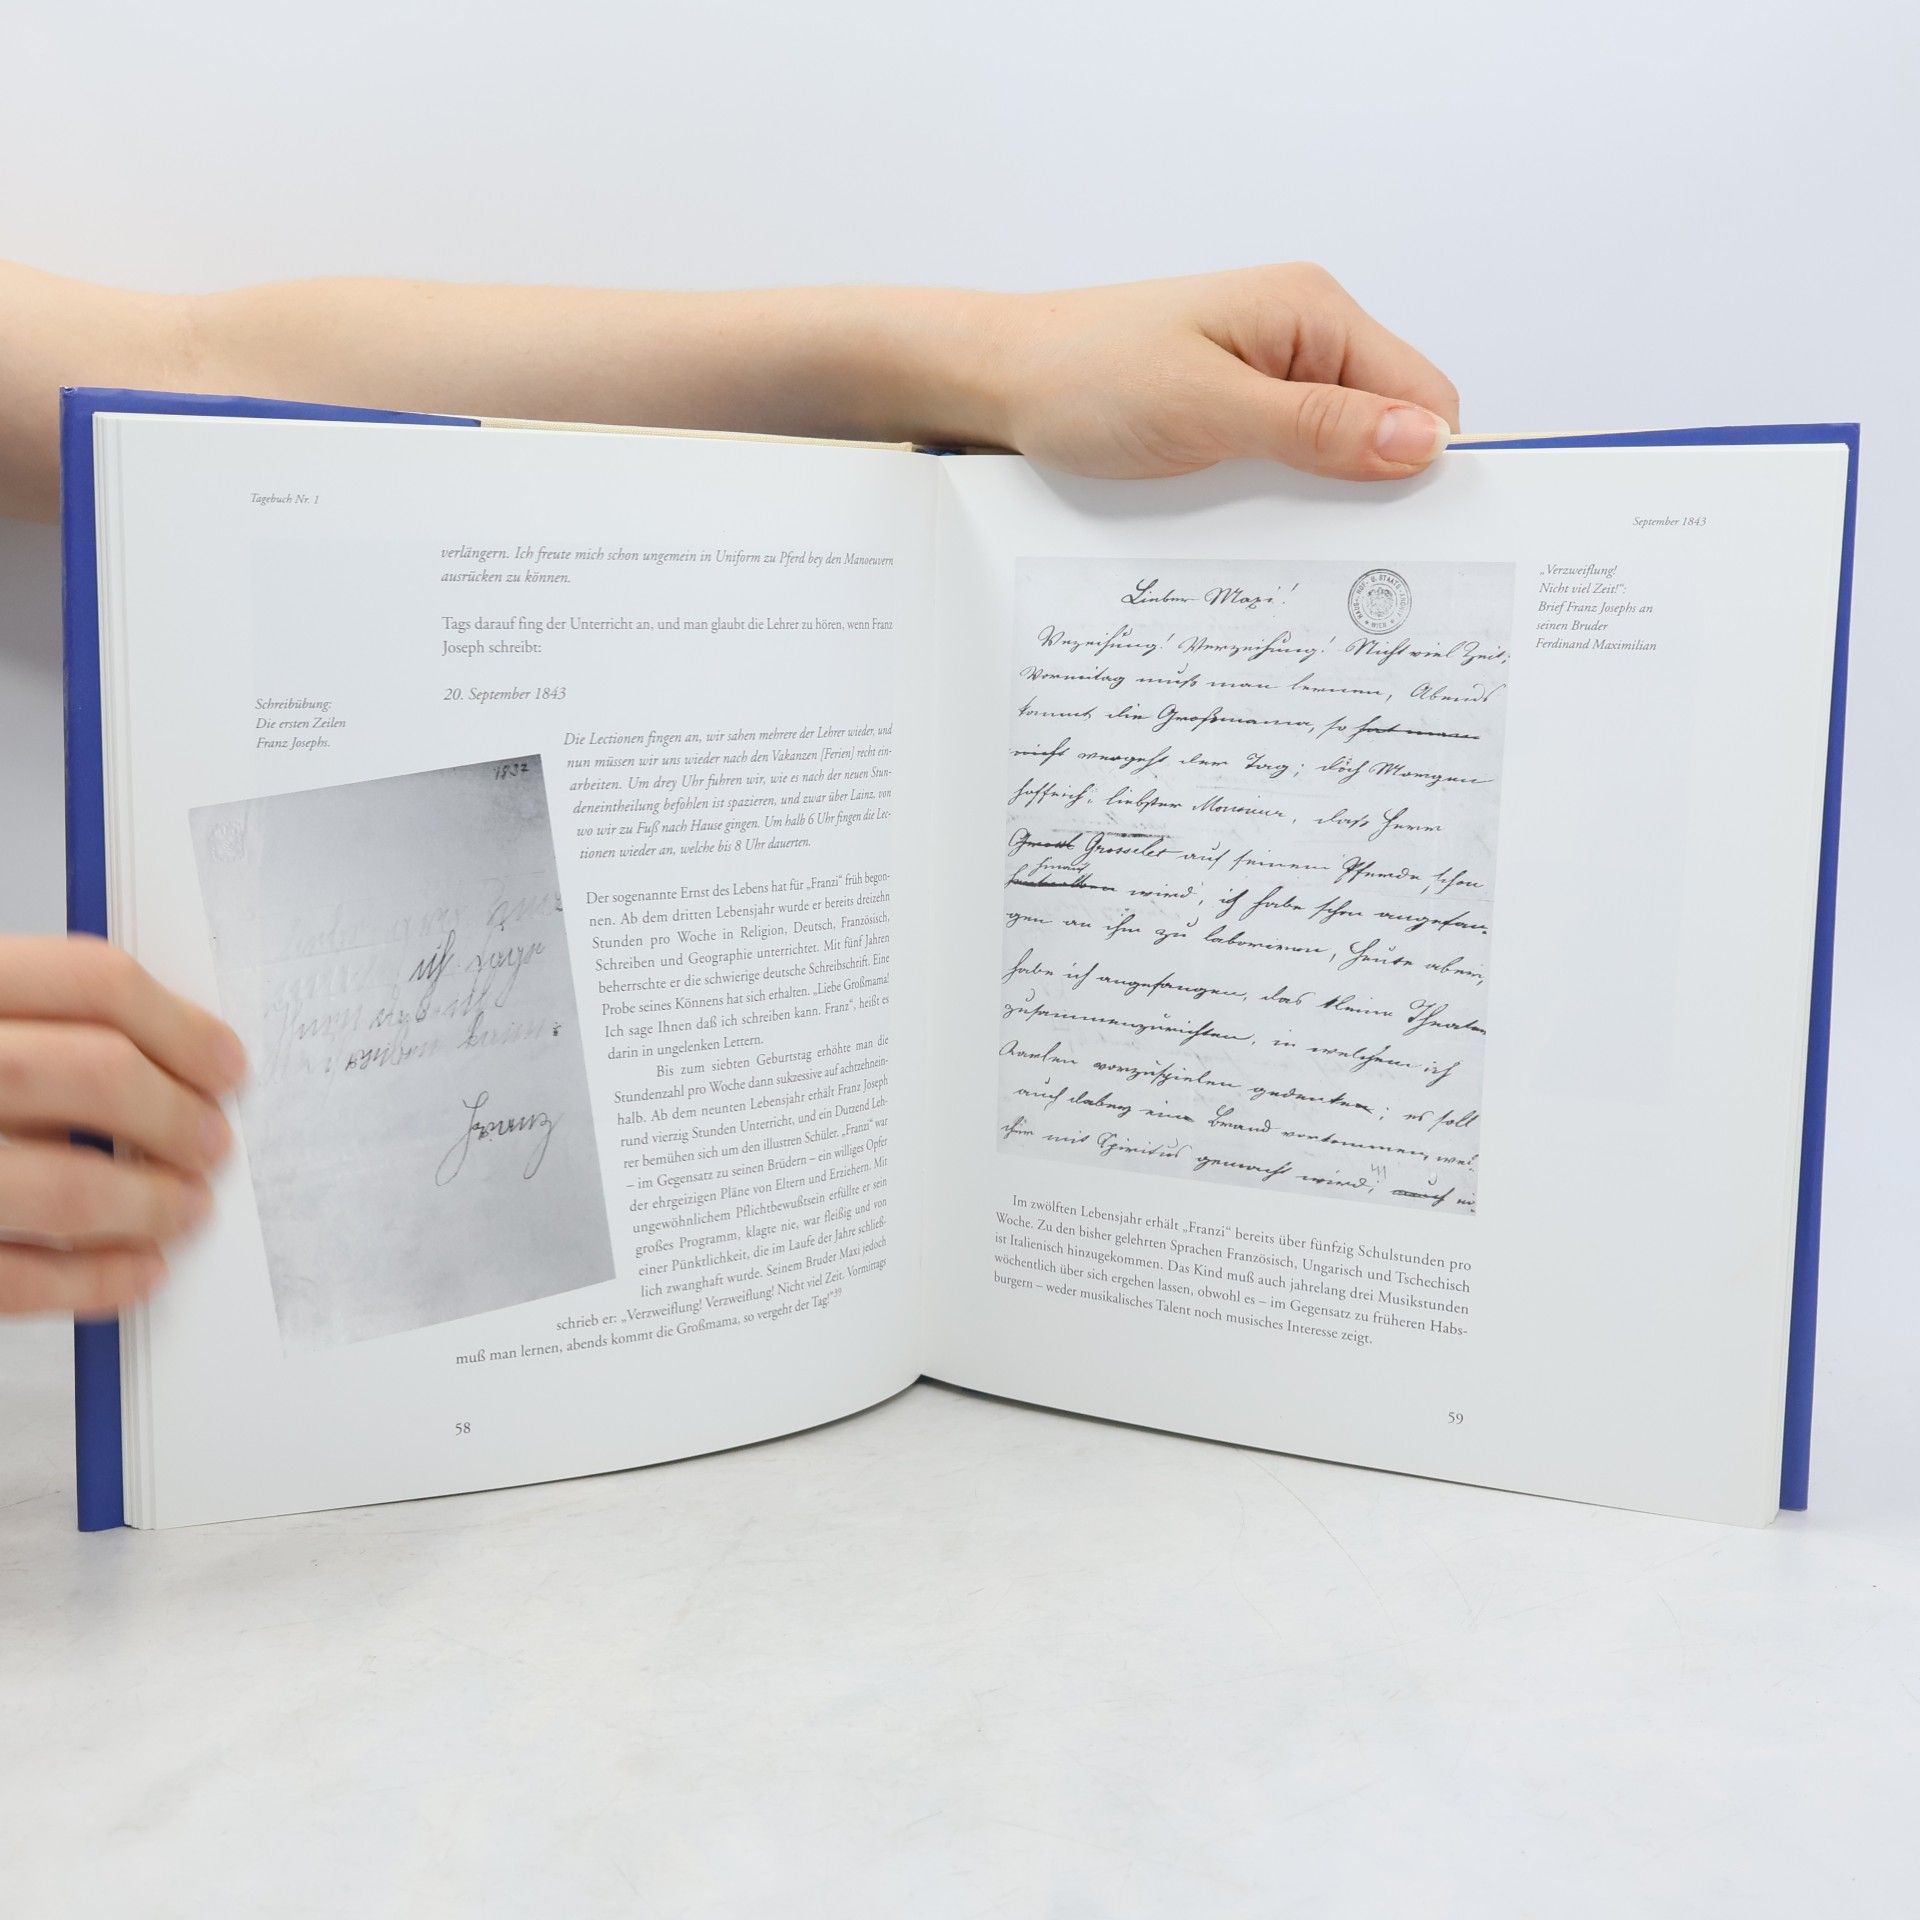 Tagebuch Nr. 1
verlängern. Ich freute mich schon ungemein in Uniform zu Pferd bey den Manoeuvern
ausrücken zu können.
Tags darauf fing der Unterricht an, und man glaubt die Lehrer zu hören, wenn Franz
Joseph schreibt:
20. September 1843
Schreibübung:
Die ersten Zeilen
Franz Josephs.
Die Lectionen fingen an, wir sahen mehrere der Lehrer wieder, und
nun müssen wir uns wieder nach den Vakanzen [Ferien] recht ein-
arbeiten. Um drey Uhr fuhren wir, wie es nach der neuen Stun-
deneintheilung befohlen ist spazieren, und zwar über Lainz, von
wo wir zu Fuß nach Hause gingen. Um halb 6 Uhr fingen die Lec-
tionen wieder an, welche bis 8 Uhr dauerten.
1837
ich sage
Franz
Der sogenannte Ernst des Lebens hat für „Franzi“ früh begon-
nen. Ab dem dritten Lebensjahr wurde er bereits dreizehn
Stunden pro Woche in Religion, Deutsch, Französisch,
Schreiben und Geographie unterrichtet. Mit fünf Jahren
beherrschte er die schwierige deutsche Schreibschrift. Eine
Probe seines Könnens hat sich erhalten. „Liebe Großmama!
Ich sage Ihnen daß ich schreiben kann. Franz“, heißt es
darin in ungelenken Lettern.
Bis zum siebten Geburtstag erhöhte man die
Stundenzahl pro Woche dann sukzessive auf achtzehnein-
halb. Ab dem neunten Lebensjahr erhält Franz Joseph
rund vierzig Stunden Unterricht, und ein Dutzend Leh-
rer bemühen sich um den illustren Schüler. „Franzi“ war
– im Gegensatz zu seinen Brüdern – ein williges Opfer
der ehrgeizigen Pläne von Eltern und Erziehern. Mit
ungewöhnlichem Pflichtbewußtsein erfüllte er sein
großes Programm, klagte nie, war fleißig und von
einer Pünktlichkeit, die im Laufe der Jahre schließ-
lich zwanghaft wurde. Seinem Bruder Maxi jedoch
schrieb er: „Verzweiflung! Verzweiflung! Nicht viel Zeit. Vormittags
muß man lernen, abends kommt die Großmama, so vergeht der Tag!“³⁹
58
September 1843
„Verzweiflung!
Nicht viel Zeit!“:
Brief Franz Josephs an
seinen Bruder
Ferdinand Maximilian
HAUS- HOF- U. STAATS-ARCHIV
WIEN
Lieber Maxi!
Vezeihung! Verzeihung! Nicht viel Zeit;
Vormitag muß man lernen, Abends
kommt die Großmama, so hat man
nicht vergeht der Tag; doch Morgen
hoffe ich, liebster Monsieur, daß Herr
Grosselet auf seinem Pferde schon
hinauf
wird, ich habe schon angefan-
gen an ihm zu laborieren, Heute abend,
habe ich angefangen, das kleine Theater
zusammenzurichten, in welchem ich
Karlen vorzuspielen gedenke; es soll
auch dabey ein Brand vorkommen, wel-
cher mit Spiritus gemacht wird; auch
Im zwölften Lebensjahr erhält „Franzi“ bereits über fünfzig Schulstunden pro
Woche. Zu den bisher gelehrten Sprachen Französisch, Ungarisch und Tschechisch
ist Italienisch hinzugekommen. Das Kind muß auch jahrelang drei Musikstunden
wöchentlich über sich ergehen lassen, obwohl es – im Gegensatz zu früheren Habs-
burgern – weder musikalisches Talent noch musisches Interesse zeigt.
59